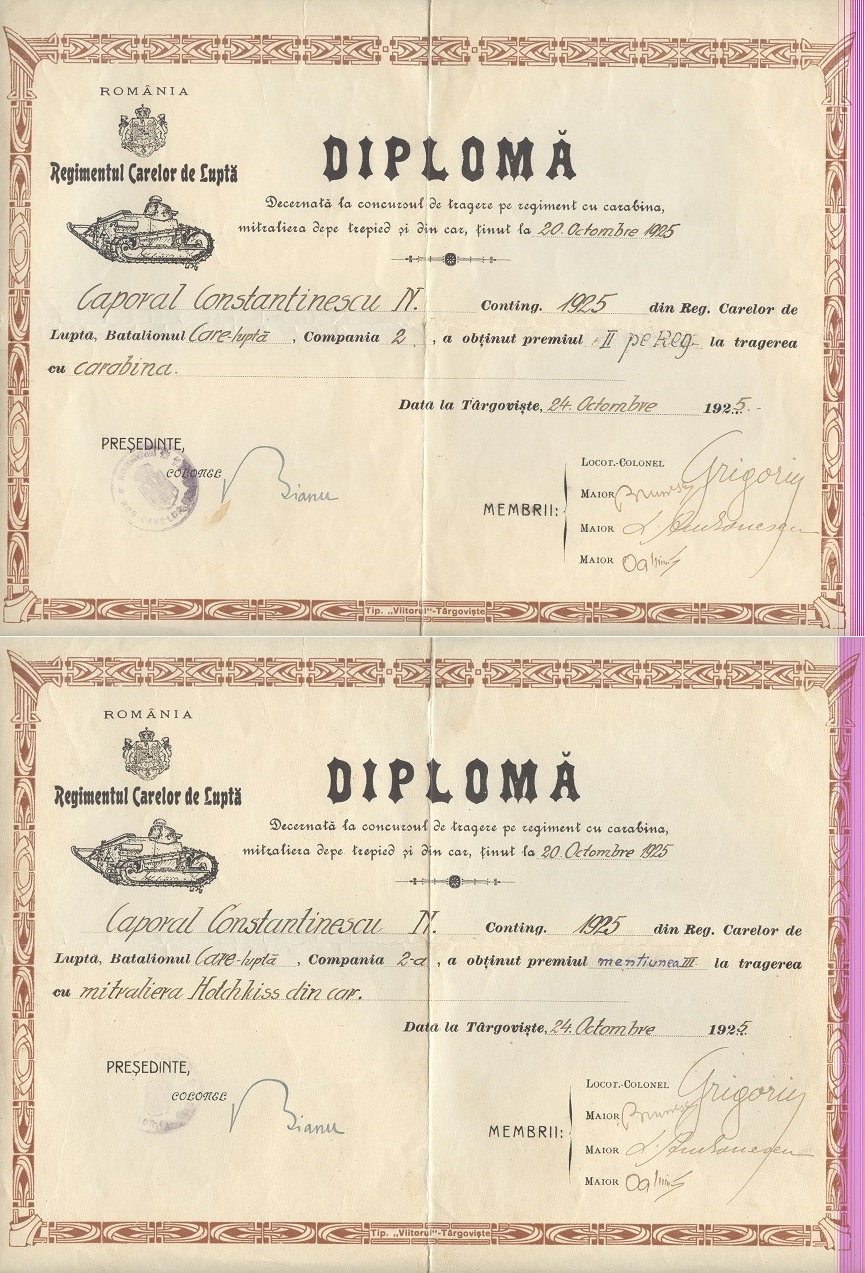 ROMÂNIA
Regimentul Carelor de Luptă
DIPLOMĂ
Decernată la concursul de tragere pe regiment cu carabina,
mitraliera depe trepied și din car, ținut la 20 Octombre 1925
Caporal Constantinescu N. Conting. 1925 din Reg. Carelor de
Luptă, Batalionul Care-luptă, Compania 2, a obținut premiul II pe Reg. la tragerea
cu carabina.
Data la Târgoviște, 24. Octombre 1925.-
PREȘEDINTE,
COLONEL Bianu
MEMBRII:
LOCOT.-COLONEL Grigoriu
MAIOR
MAIOR
MAIOR
Tip. „Viitorul"-Târgoviște
ROMÂNIA
Regimentul Carelor de Luptă
DIPLOMĂ
Decernată la concursul de tragere pe regiment cu carabina,
mitraliera depe trepied și din car, ținut la 20 Octombre 1925
Caporal Constantinescu N. Conting. 1925 din Reg. Carelor de
Luptă, Batalionul Care-luptă, Compania 2-a, a obținut premiul mențiunea III la tragerea
cu mitraliera Hotchkiss din car.
Data la Târgoviște, 24. Octombre 1925
PREȘEDINTE,
COLONEL Bianu
MEMBRII:
LOCOT.-COLONEL Grigoriu
MAIOR
MAIOR
MAIOR
Tip. „Viitorul"-Târgoviște